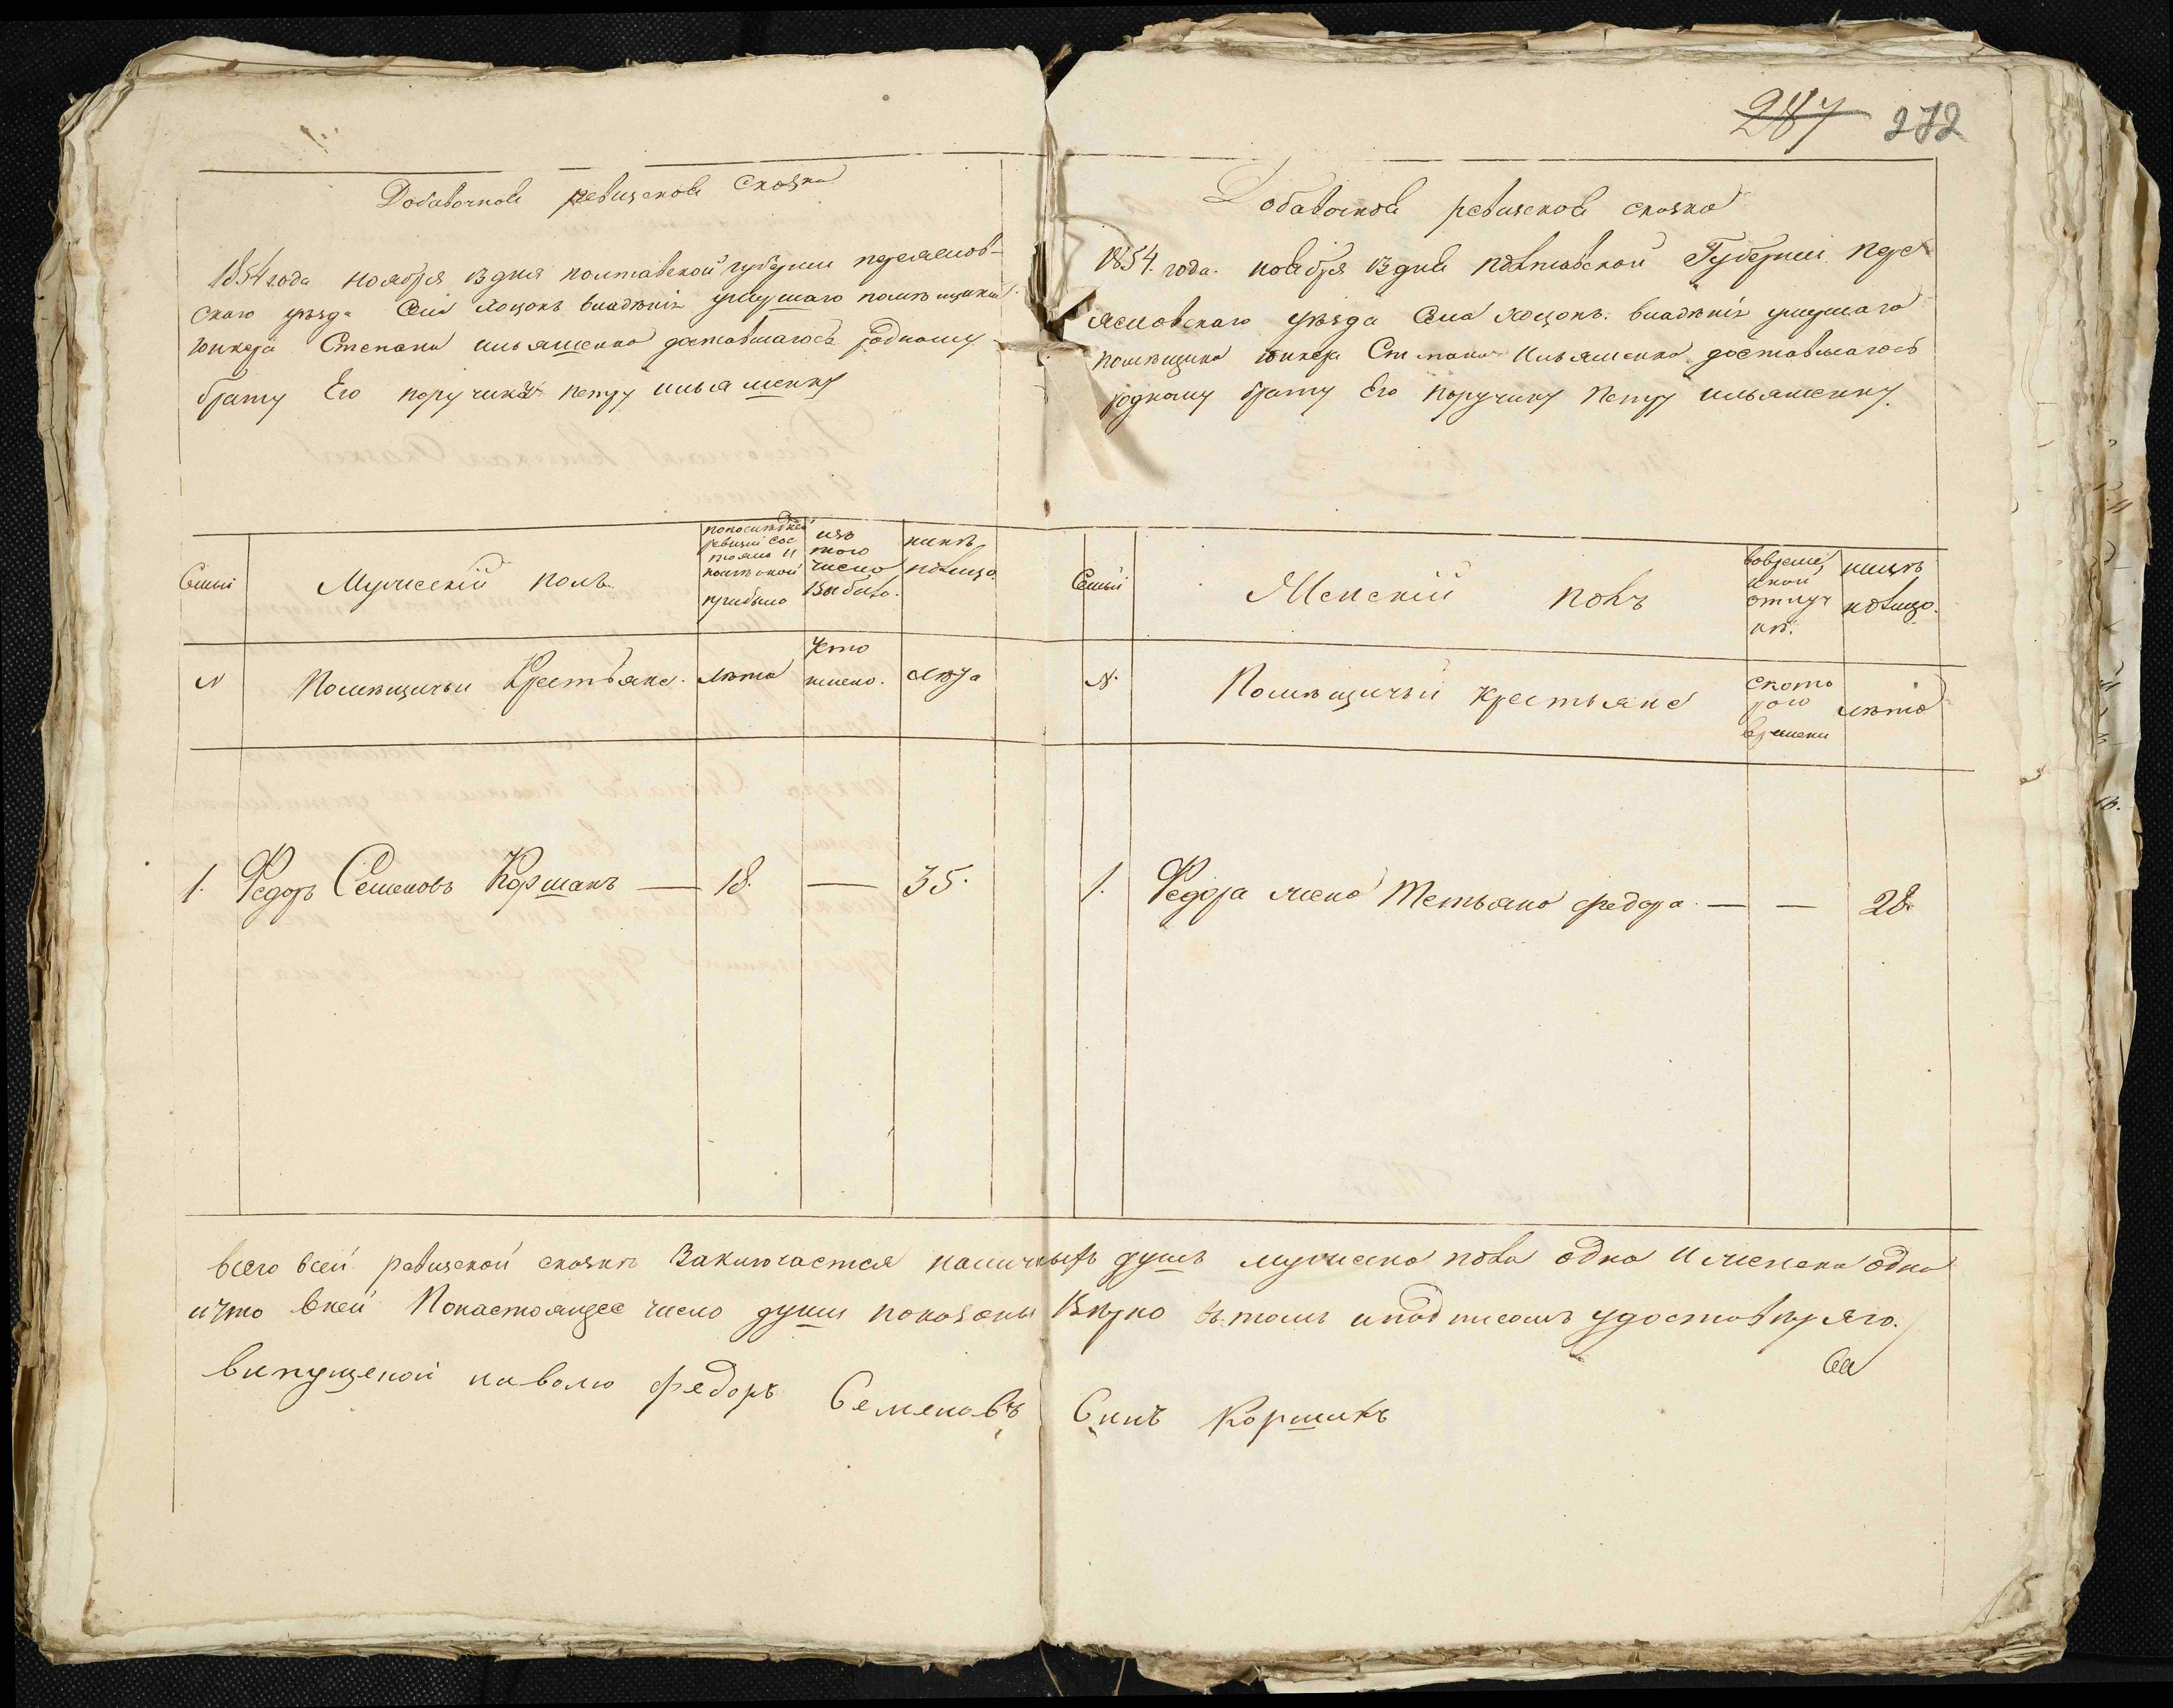 287 272
Добавочноя ревизскоя Сказка
1854 года ноября 13 дня полтавской губернии переяслов-
скаго уѣзда Села Хоцокъ владѣнія умершаго помѣщика
юнкера Степана ильяшенка доставшагось родному
брату Его поручику петру ильяшенку
Семьи
Мужескій полъ
попослѣдней
ревизіи сос
тояло и
послѣ оной
прибыло
изъ
того
число
Выбыло.
нынѣ
налицо.
N
Помѣщичьи Крестьяне.
лѣта
Кто
имено.
лѣта
1. Федоръ Семеновъ Коршакъ — 18. — 35.
Добавочноя ревизскоя сказка
1854. года. ноября 13 дня полтавской Губерніи. пере
ясловскаго уѣзда Села Хоцокъ. владѣнія умершаго
помѣщика юнкера Степана Ильяшенка доставшагось
родному брату Его поручику Петру ильяшенку.
Семьи
Женскій полъ
вовреме,
ной
отлуч
кѣ.
нынѣ
налицо.
N.
Помѣщичьи крестьяне
ското
рого
времени
лѣта
1. Федора жена Тетьяна федора. — — 28.
всего всей ревизской сказкѣ Заключается наличныхъ душъ мужеска пола одна И женска одна
ичто вней Понастоящее число души показаны Вѣрно вътомъ иподписомъ удостовѣряю.
випущеной наволю федоръ Семеновъ Синъ Коршакъ